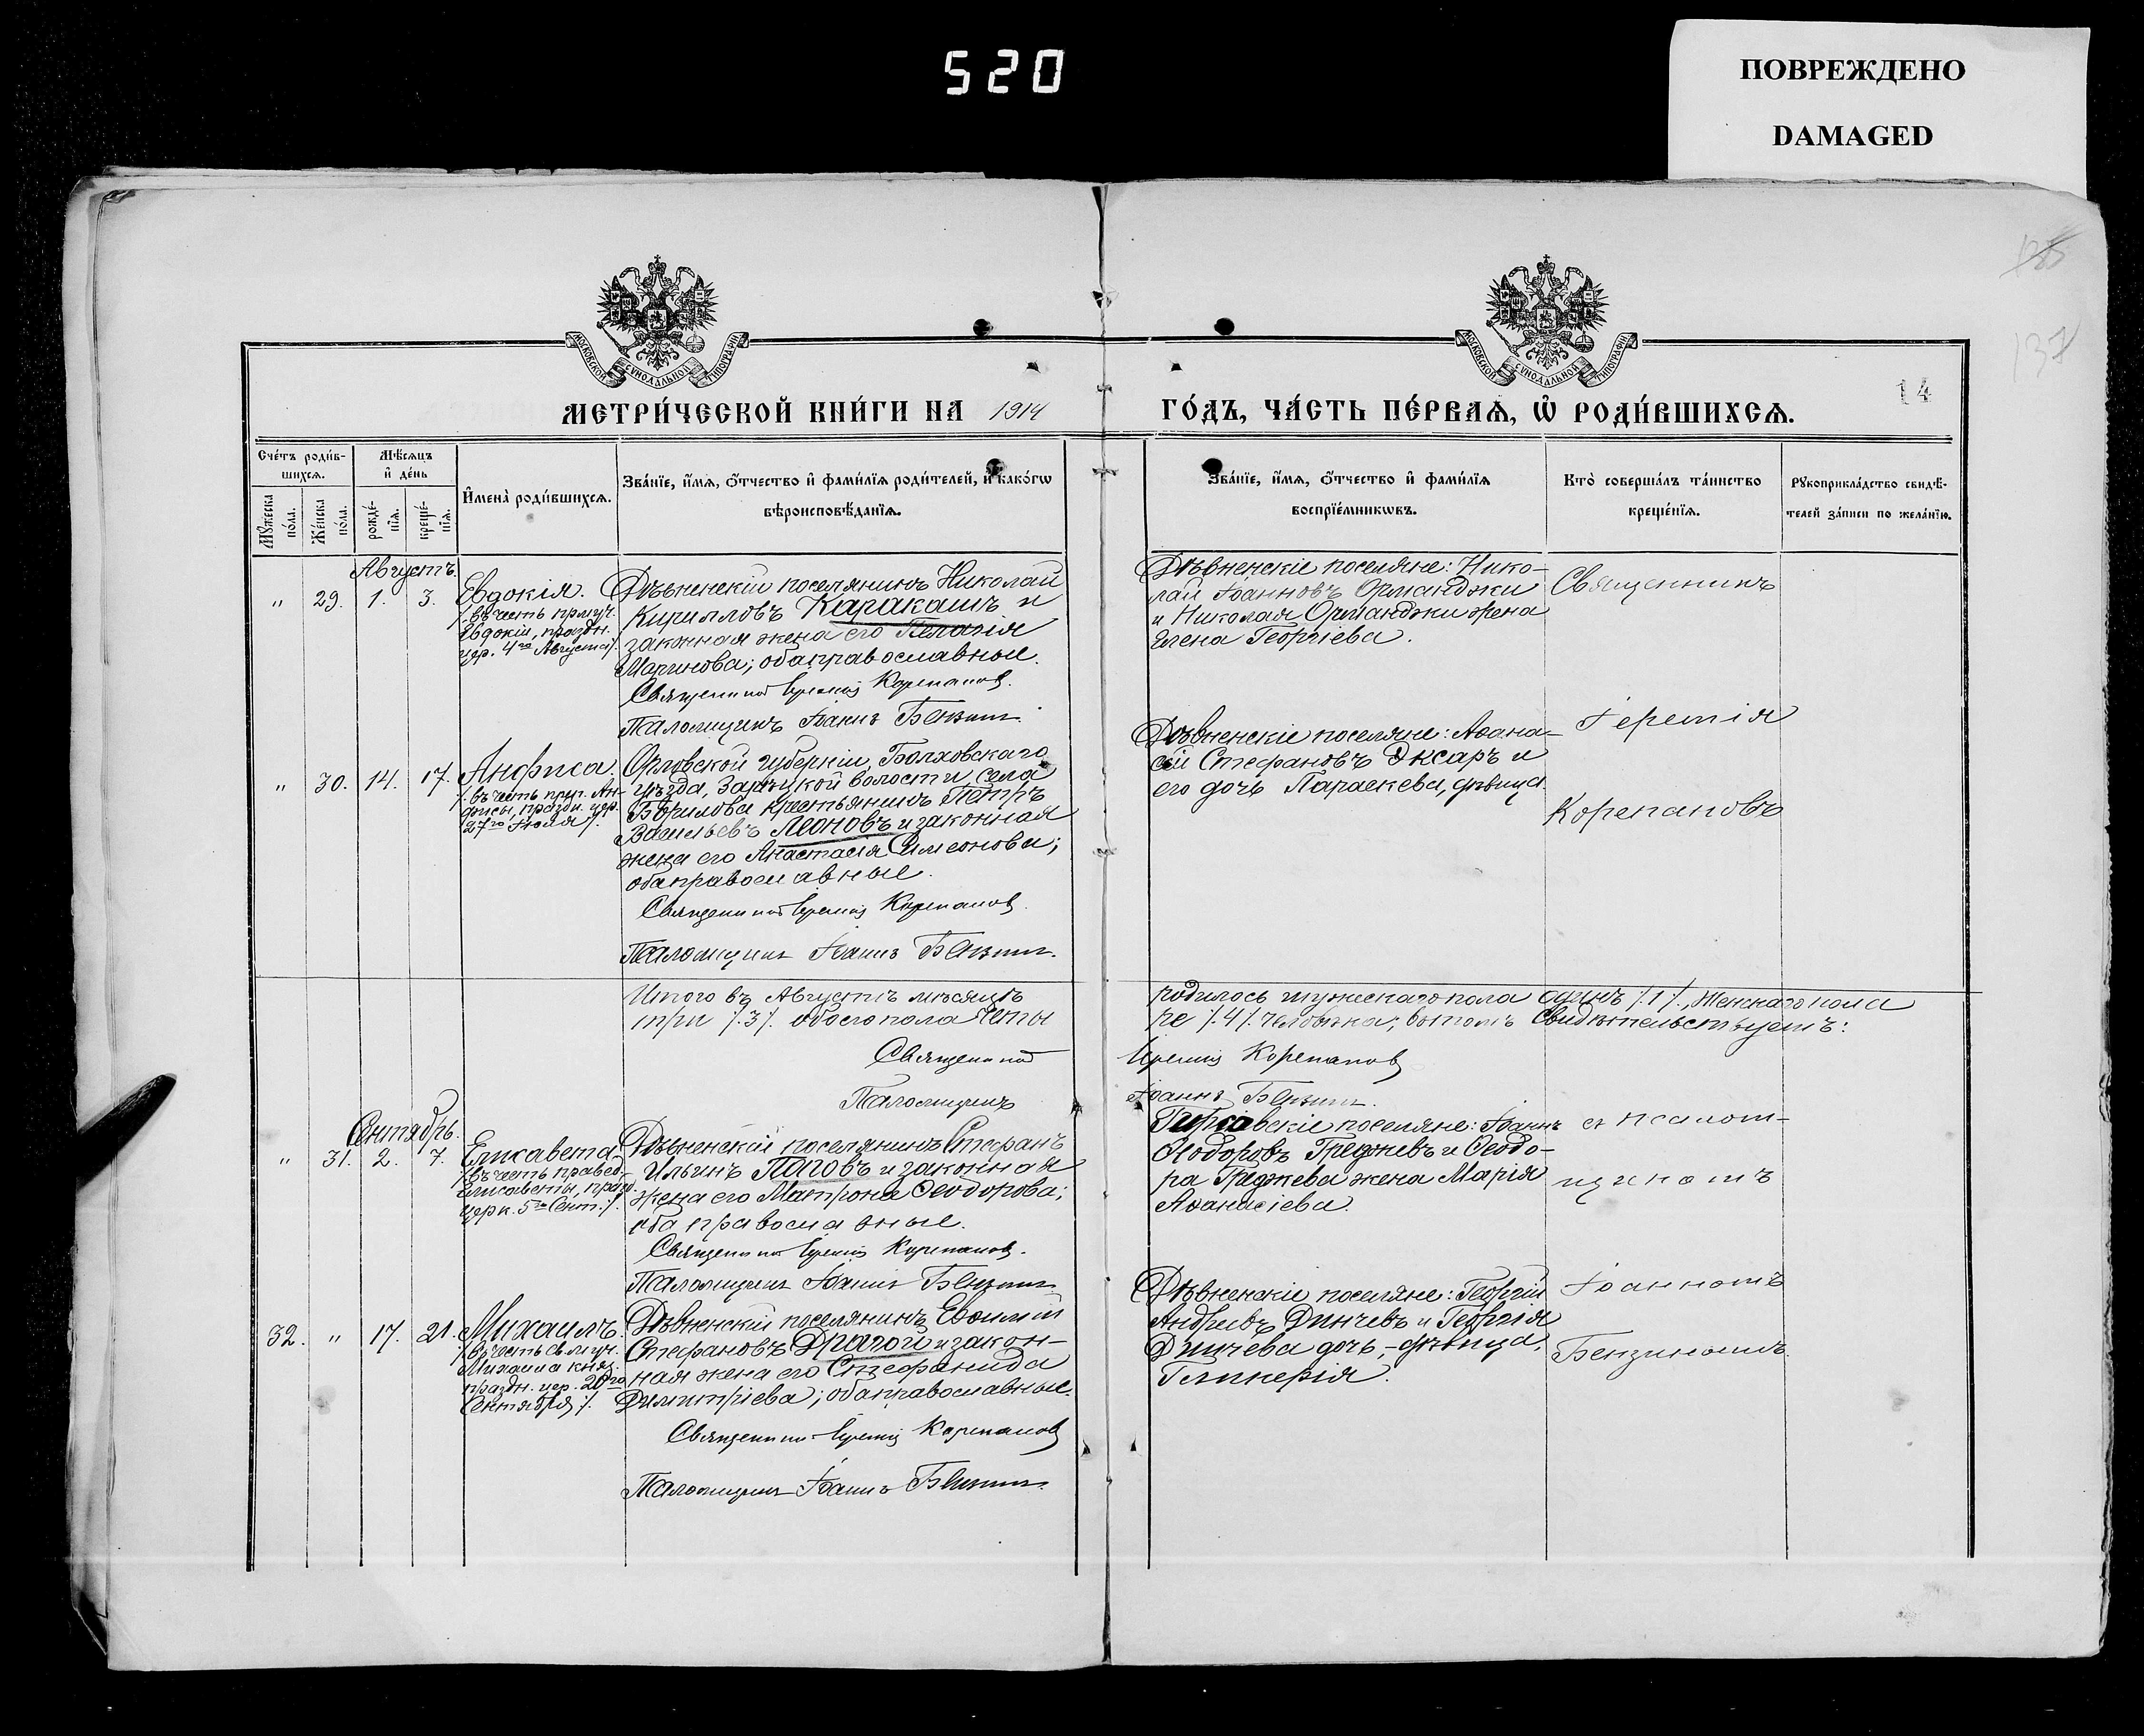 520
ПОВРЕЖДЕНО
DAMAGED
137
14
МОСКОВСКОЙ СУНОДАЛЬНОЙ ТИПОГРАФІИ
МОСКОВСКОЙ СУНОДАЛЬНОЙ ТИПОГРАФІИ
МЕТРИ́ЧЕСКОЙ КНИ́ГИ НА 1914 ГО́ДЪ, ЧА́СТЬ ПЕ́РВАѦ, Ѡ РОДИ́ВШИХСѦ.
Сче́тъ роди́в-
шихсѧ.
Мꙋжеска по́ла.
Же́нска по́ла.
Мѣ́сѧцъ
и де́нь
рожде́-нїѧ.
креще́-нїѧ.
И҆мена̀ роди́вшихсѧ.
Зва́нїе, и҆́мѧ, о҆́тчество и҆ фами́лїѧ роди́телей, и҆ како́гѡ
вѣроисповѣ́данїѧ.
Зва́нїе, и҆́мѧ, о҆́тчество и҆ фами́лїѧ
воспрїе́мникѡвъ.
Кто̀ соверша́лъ та́инство
креще́нїѧ.
Рꙋкоприкла́дство свидѣ́-
телей за́писи по жела́нїю.
Августъ.
" 29. 1. 3.
Евдокія.
/. въ честь прмуч.
Евдокіи, праздн.
цер. 4го Августа /.
Дѣвненскій поселянинъ Николай
Кирилловъ Каракашъ и
законная жена его Пелагія
Маринова; оба православные.
Священникъ Іеремія Корепановъ.
Псаломщикъ Іоаннъ Бензинъ.
Дѣвненскіе поселяне: Нико-
лай Іоанновъ Орманджи
и Николая Орманджи жена
Елена Георгіева.
Священникъ
Іеремія
Корепановъ
" 30. 14. 17.
Анфиса.
/. въ честь прп. Ан-
фисы, праздн. цер.
27го Іюля /.
Орловской губерніи, Болховскаго
уѣзда, Зарѣцкой волости, села
Борилова крестьянинъ Петръ
Васильевъ Леоновъ и законная
жена его Анастасія Симеонова;
оба православные.
Священникъ Іеремія Корепановъ.
Псаломщикъ Іоаннъ Бензинъ.
Дѣвненскіе поселяне: Аѳана-
сій Стефановъ Эксаръ и
его дочь Параскева, дѣвица.
Итого въ Августѣ мѣсяцѣ родилось мужескаго пола одинъ /.1/., женскаго пола
три /.3/. обоего пола четыре /.4/. человѣка; въ томъ свидѣтельствуетъ:
Священникъ Іеремія Корепановъ
Псаломщикъ Іоаннъ Бензинъ.
Сентябрь.
" 31. 2. 7.
Елисавета.
/. въ честь правед.
Елисаветы, празд.
церк. 5го Сент. /.
Дѣвненскій поселянинъ Стефанъ
Ильинъ Паговъ и законная
жена его Матрона Ѳеодорова;
оба православные.
Священникъ Іеремія Корепановъ.
Псаломщикъ Іоаннъ Бензинъ
поселяне: Іоаннъ
Ѳеодоровъ Греджевъ и Ѳеодо-
ра Греджева жена Марія
Аѳанасіева.
съ псалом-
щикомъ
Іоанномъ
Бензинымъ.
32. " 17. 21.
Михаилъ.
/. въ честь св. муч.
Михаила княз.
праздн. цер. 20го
Сентября /.
Дѣвненскій поселянинъ Евѳимій
Стефановъ Драгой и закон-
ная жена его Стефанида
Димитріева; оба православные.
Священникъ Іеремія Корепановъ
Псаломщикъ Іоаннъ Бензинъ.
Дѣвненскіе поселяне: Георгій
Андреевъ Динчевъ и Георгія
Динчева дочь, - дѣвица,
Гликерія.